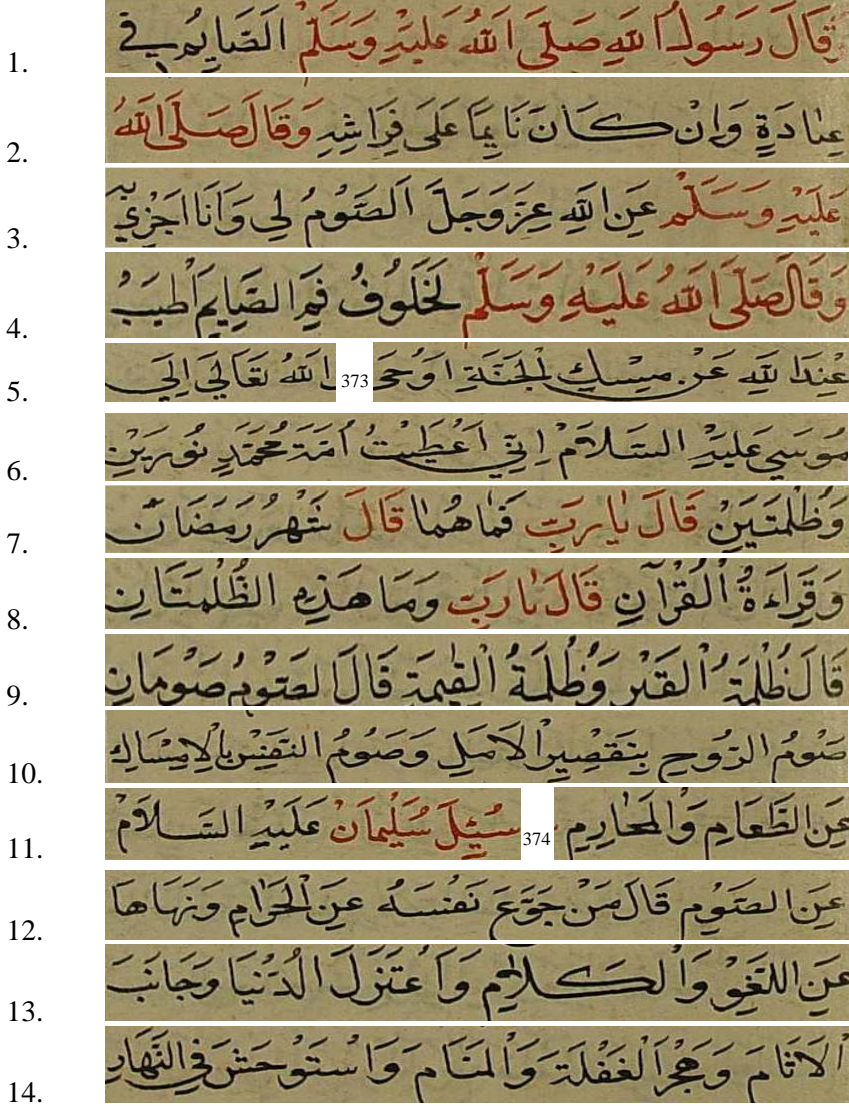 1. قَالَ رَسُولُ اللهِ صَلَّى اللهُ عَلَيْهِ وَسَلَّمْ الصَّايِمُ فِي
2. عِبَادَةٍ وَاِنْ كَانَ نَايِمًا عَلَى فِرَاشِهِ وَقَالَ صَلَّى اللهُ
3. عَلَيْهِ وَسَلَّمْ عَنِ اللهِ عَزَّ وَجَلَّ الصَّوْمُ لِي وَاَنَا اَجْزِي بِهِ
4. وَقَالَ صَلَّى اللهُ عَلَيْهِ وَسَلَّمْ لَخَلُوفُ فَمِ الصَّايِمِ اَطْيَبُ
5. عِنْدَ اللهِ عَنْ مِسْكِ الْجَنَّةِ 373 اَوْحَى اللهُ تَعَالَى اِلَى
6. مُوسَى عَلَيْهِ السَّلاَمْ اِنِّي اَعْطَيْتُ اُمَّةَ مُحَمَّدٍ نُورَيْنِ
7. وَظُلْمَتَيْنِ قَالَ يَارَبِّ فَمَا هُمَا قَالَ شَهْرُ رَمَضَانَ
8. وَقِرَاءَةُ الْقُرْآنِ قَالَ يَارَبِّ وَمَا هَذِهِ الظُّلْمَتَانِ
9. قَالَ ظُلْمَةُ الْقَبْرِ وَظُلْمَةُ الْقِيمَةِ قَالَ الصَّوْمُ صَوْمَانِ
10. صَوْمُ الرُّوحِ بِتَقْصِيرِ الْاَمَلِ وَصَوْمُ النَّفْسِ بِالْاِمْسَاكِ
11. عَنِ الطَّعَامِ وَالْمَحَارِمِ 374 سُئِلَ سُلَيْمَانْ عَلَيْهِ السَّلاَمْ
12. عَنِ الصَّوْمِ قَالَ مَنْ جَوَّعَ نَفْسَهُ عَنِ الْحَرَامِ وَنَهَاهَا
13. عَنِ اللَّغْوِ وَالْكَلاَمِ وَاعْتَزَلَ الدُّنْيَا وَجَانَبَ
14. الْاَثَامَ وَهَجْرَ الْغَفْلَةَ وَالْمَنَامَ وَاسْتَوْحَشَ فِي النَّهَارِ